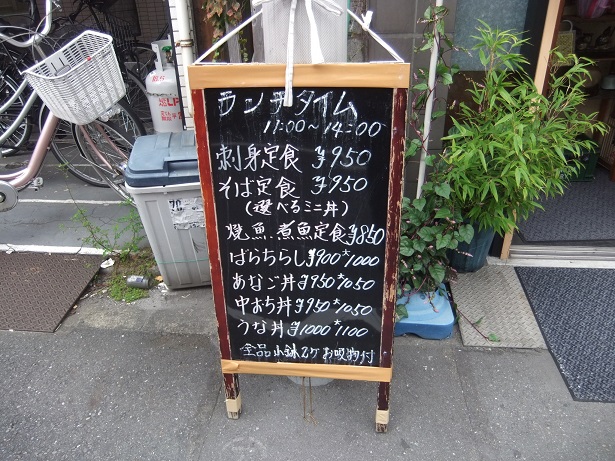 ランチタイム
11:00〜14:00
刺身定食 ¥950
そば定食 ¥950
(選べるミニ丼)
焼魚.煮魚定食¥850
ばらちらし¥900*1000
あなご丼¥950*1050
中おち丼¥950*1050
うな丼¥1000*1100
全品小鉢2ケお吸物付